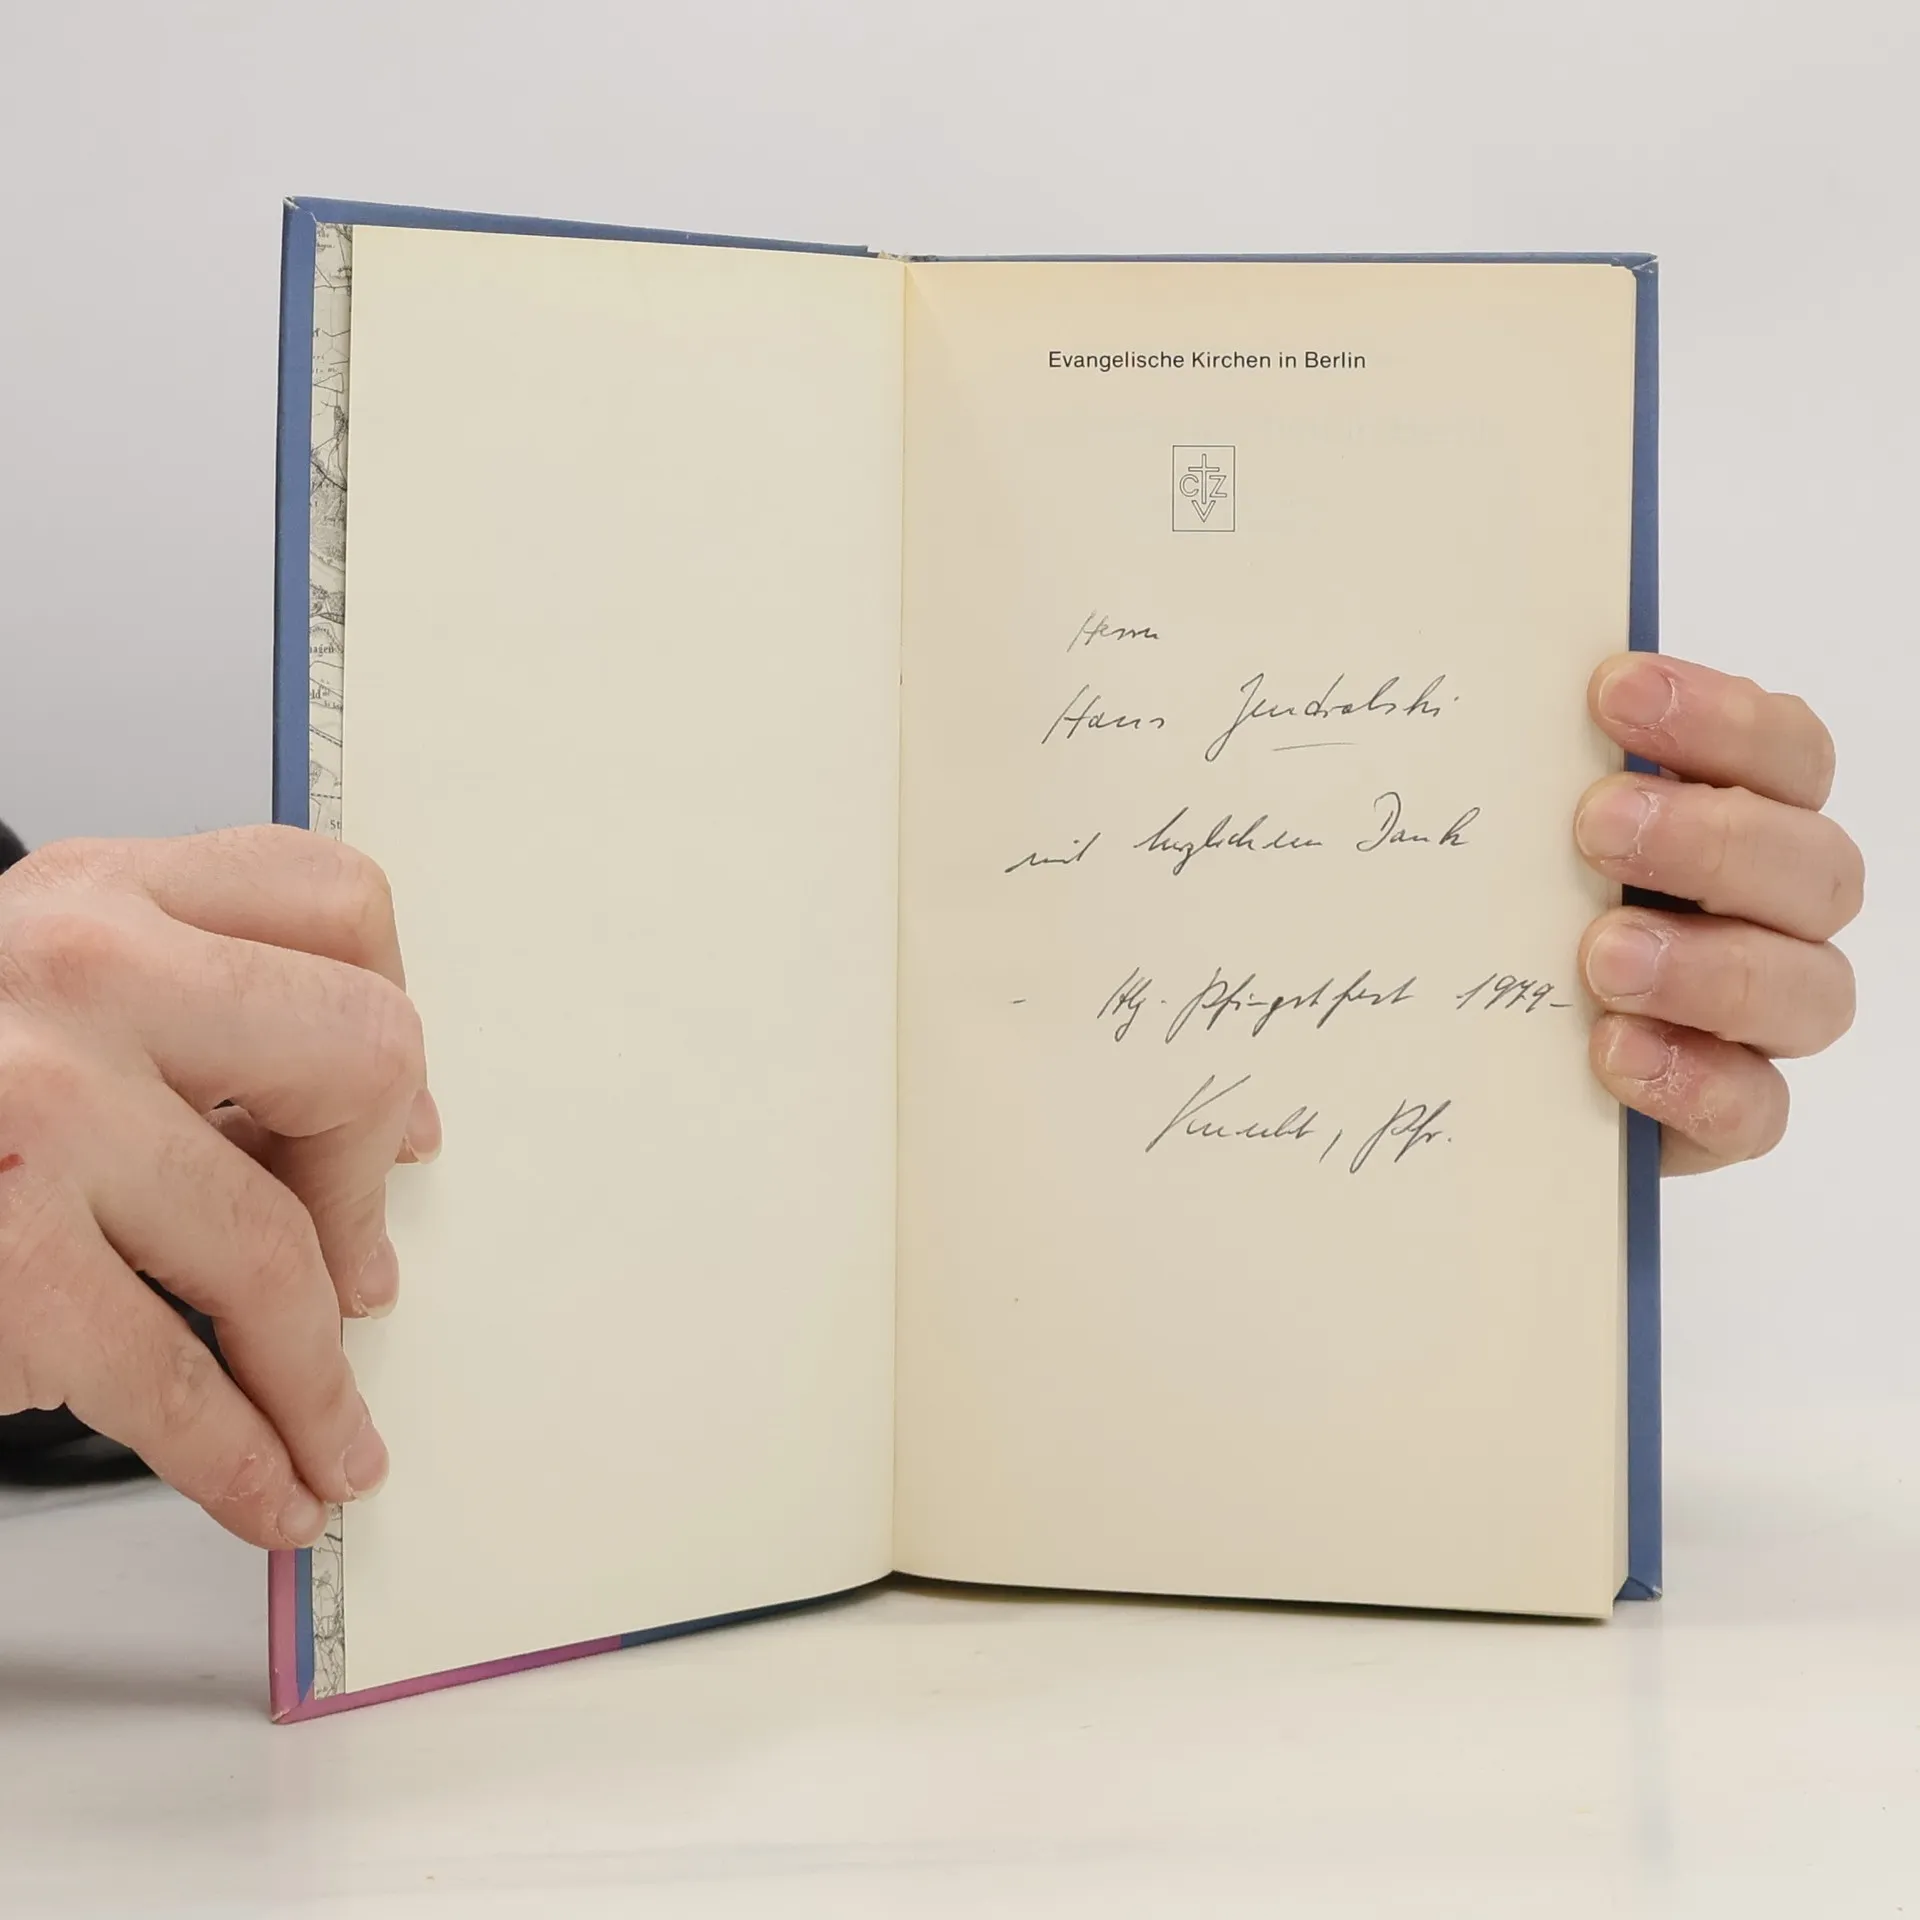 Evangelische Kirchen in Berlin
C Z
V
Herrn
Hans Jendralski
mit herzlichem Dank
- Hlg. Pfingstfest 1979-
Knecht, Pfr.